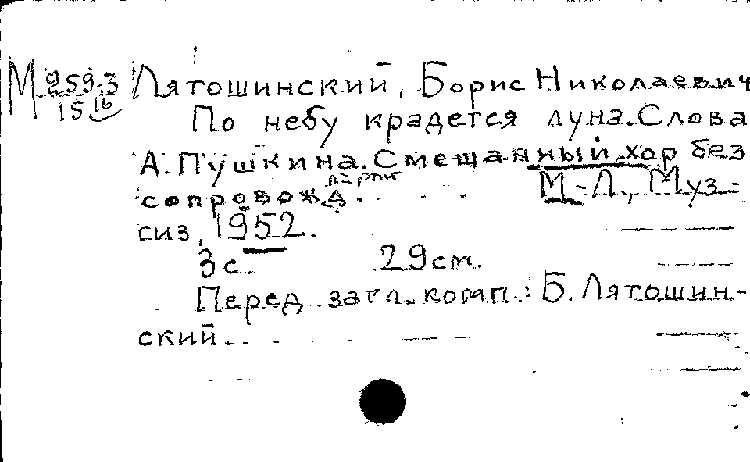 М 259.3 Лятошинский, Борис Николаевич
15 16 По небу крадется луна. Слова
А. Пушкина. Смешанный хор без
сопровожд. М.-Л., Муз-
гиз, 1952.
3 с. 29 см.
Перед загл. комп.: Б. Лятошин-
ский.